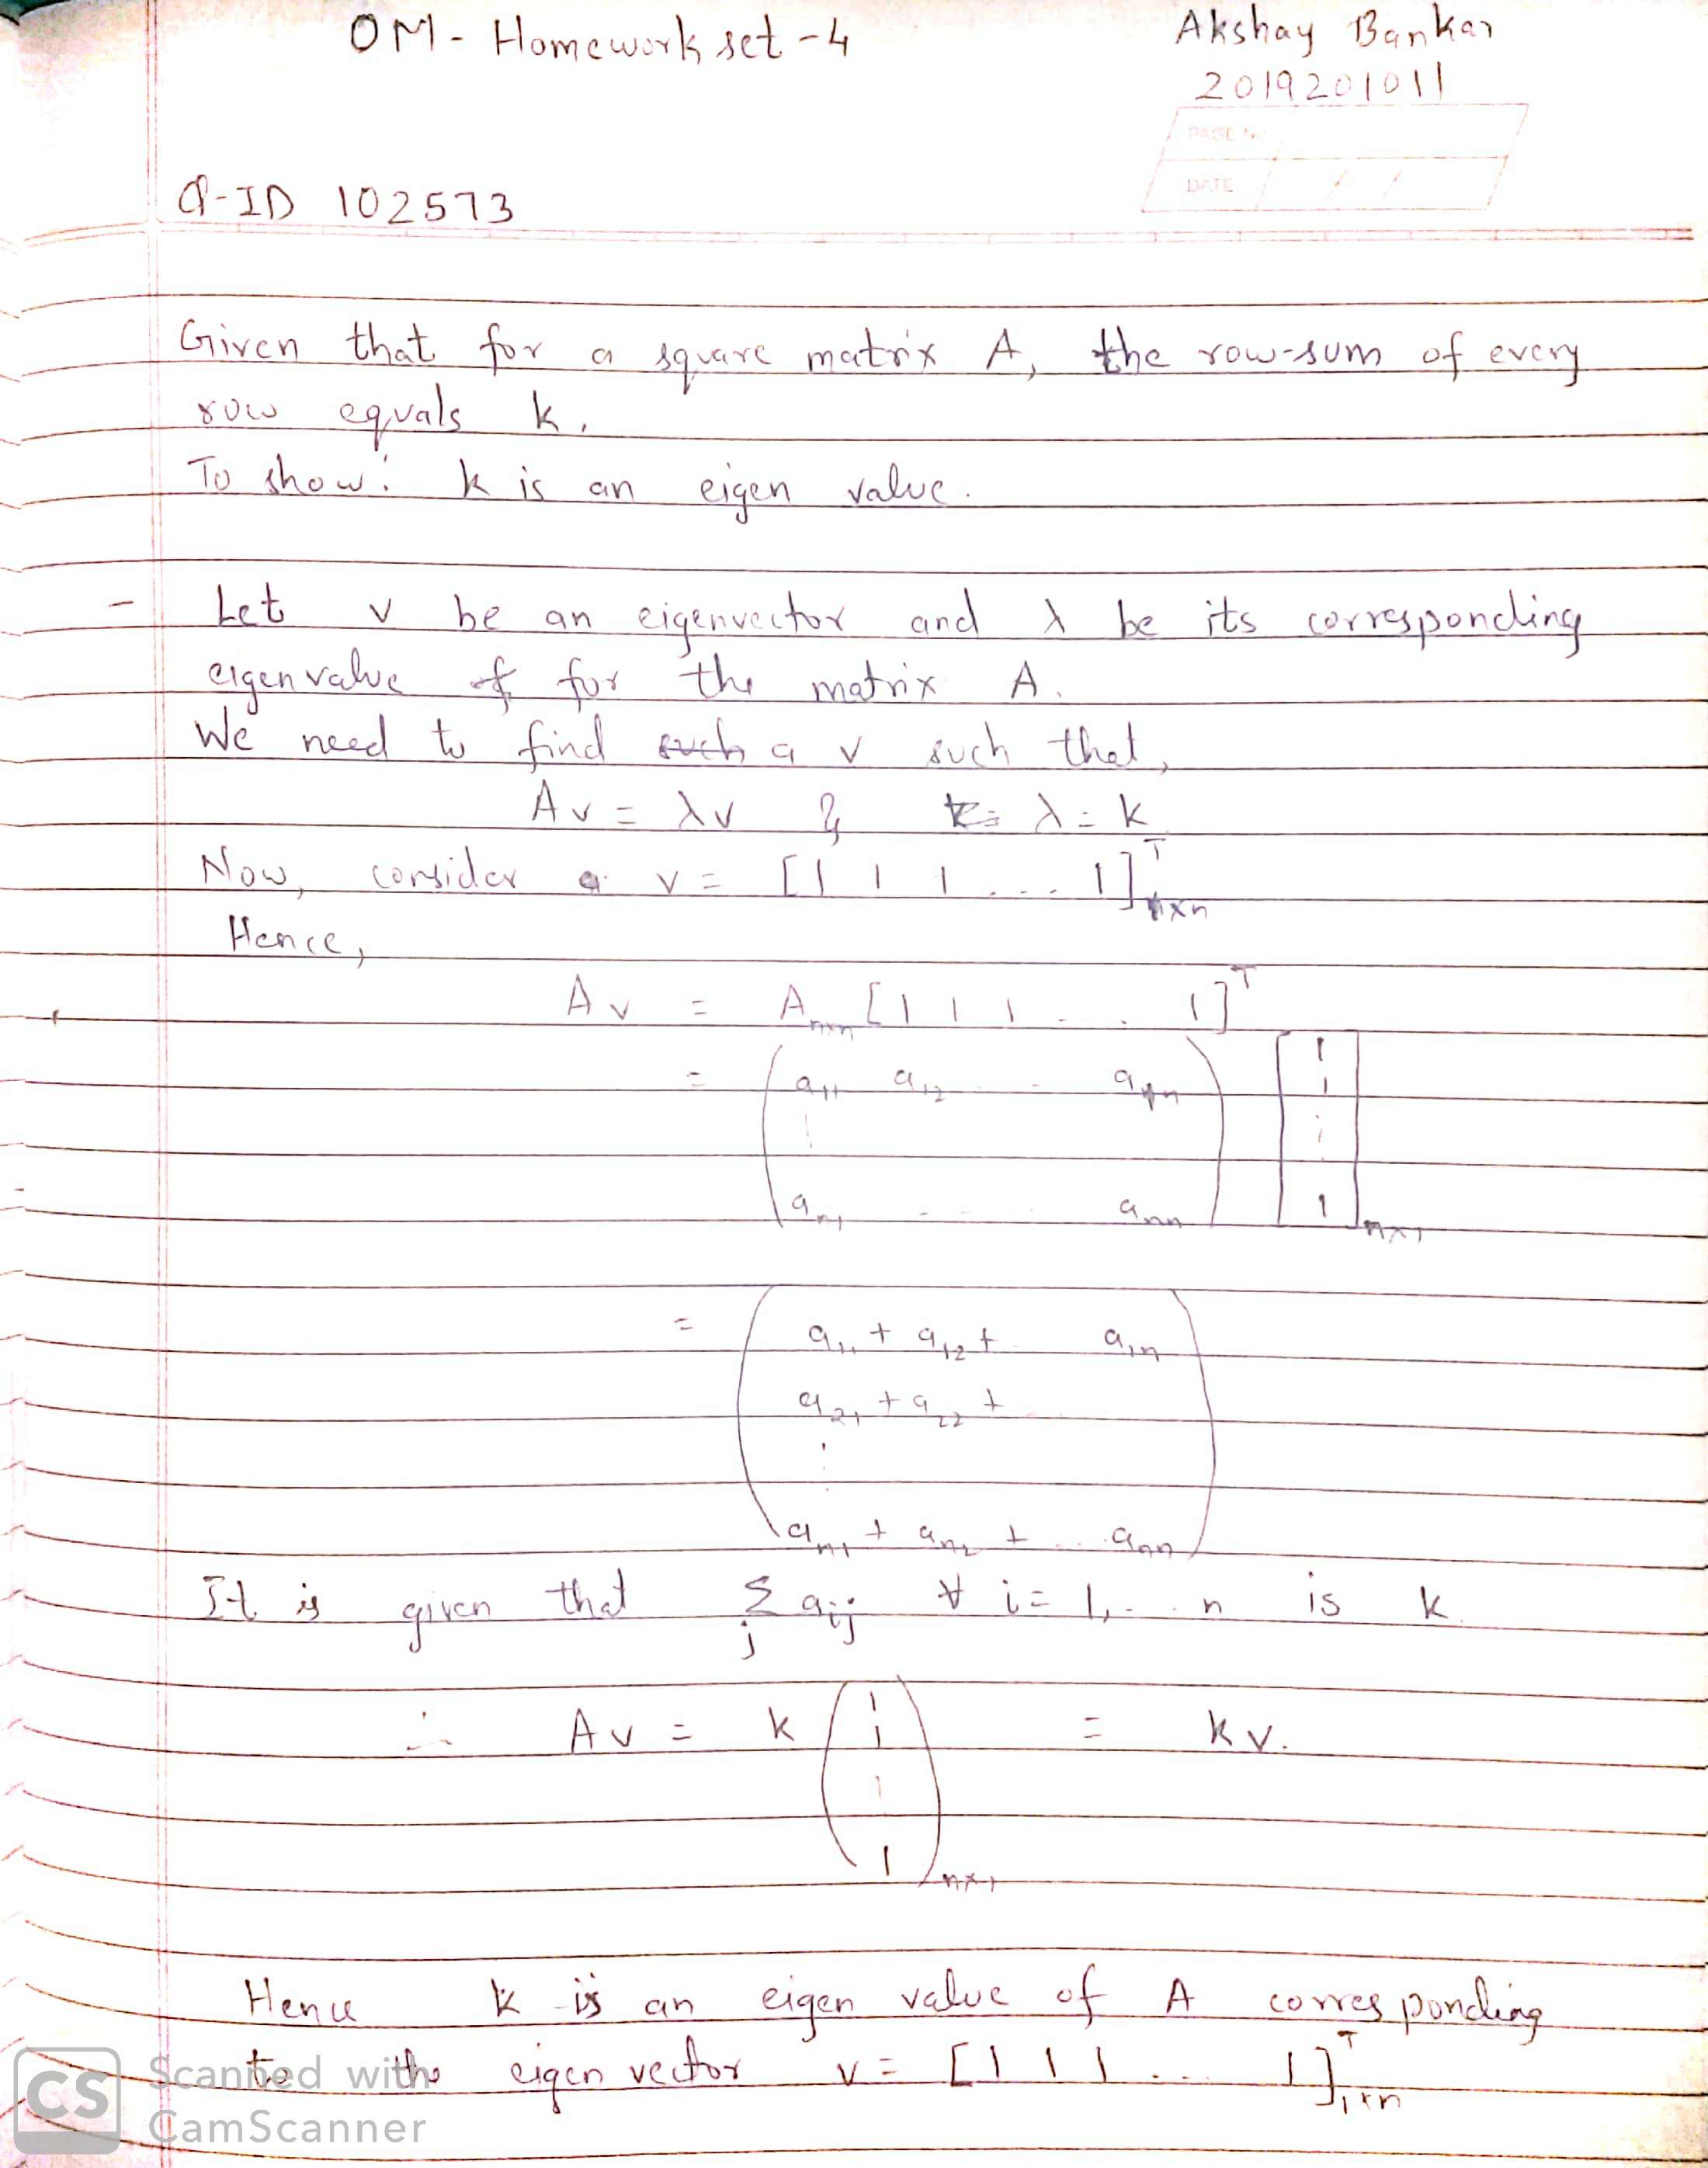 OM - Homework set - 4
Akshay Bankar
2019201011
PAGE No
DATE / /
Q-ID 102573
Given that for a square matrix A, the row-sum of every
row equals k.
To show: k is an eigen value.
- Let v be an eigenvector and λ be its corresponding
eigenvalue of for the matrix A.
We need to find such a v such that,
Av = λv & k= λ = k
Now, consider a v = [1 1 1 ... 1]ᵀ 1×n
Hence,
Av = Aₙₓₙ [1 1 1 . . 1]ᵀ
= ( a₁₁ a₁₂ . . a₁ₙ ) [ 1
1
⋮ ⋮
aₙ₁ . . . aₙₙ 1 ] n×1
= ( a₁₁ + a₁₂ + a₁ₙ
a₂₁ + a₂₂ +
⋮
aₙ₁ + aₙ₂ + ... aₙₙ )
It is given that Σⱼ aᵢⱼ ∀ i = 1, . . n is k.
∴ Av = k ( 1 1 1 1 ) n×1 = kv.
Hence k is an eigen value of A corresponding
to the eigen vector v = [1 1 1 ... 1]ᵀ 1×n
CS Scanned with
CamScanner